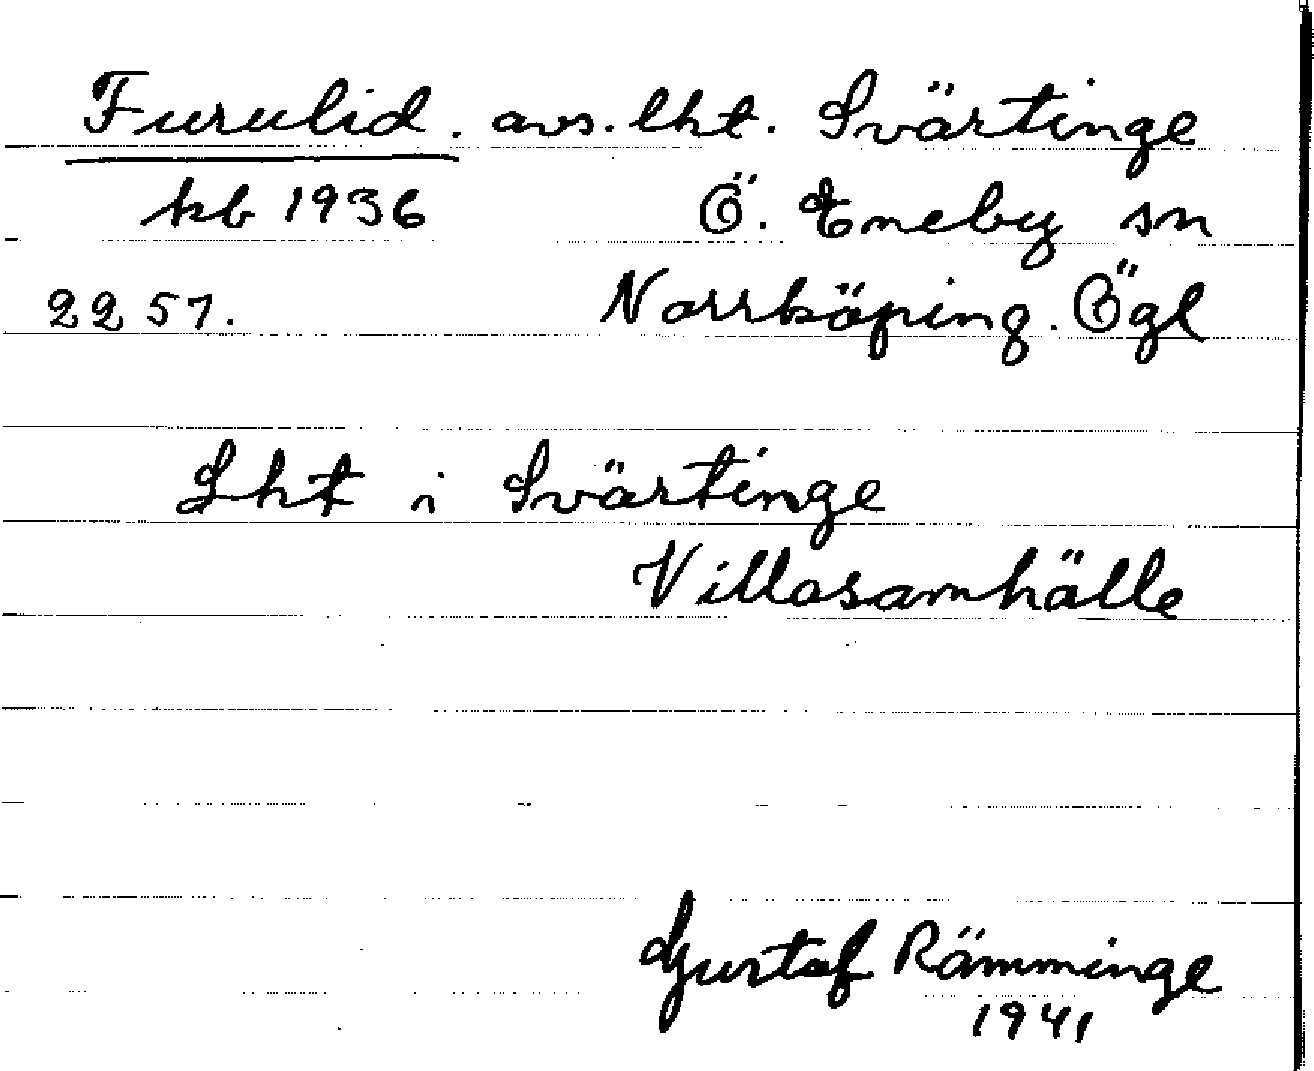 Furulid. avs. lht. Svärtinge
kb 1936 Ö. Eneby sn
2257. Norrköping. Ögl
Lht i Svärtinge
Villasamhälle
Gustaf Rämminge
1941